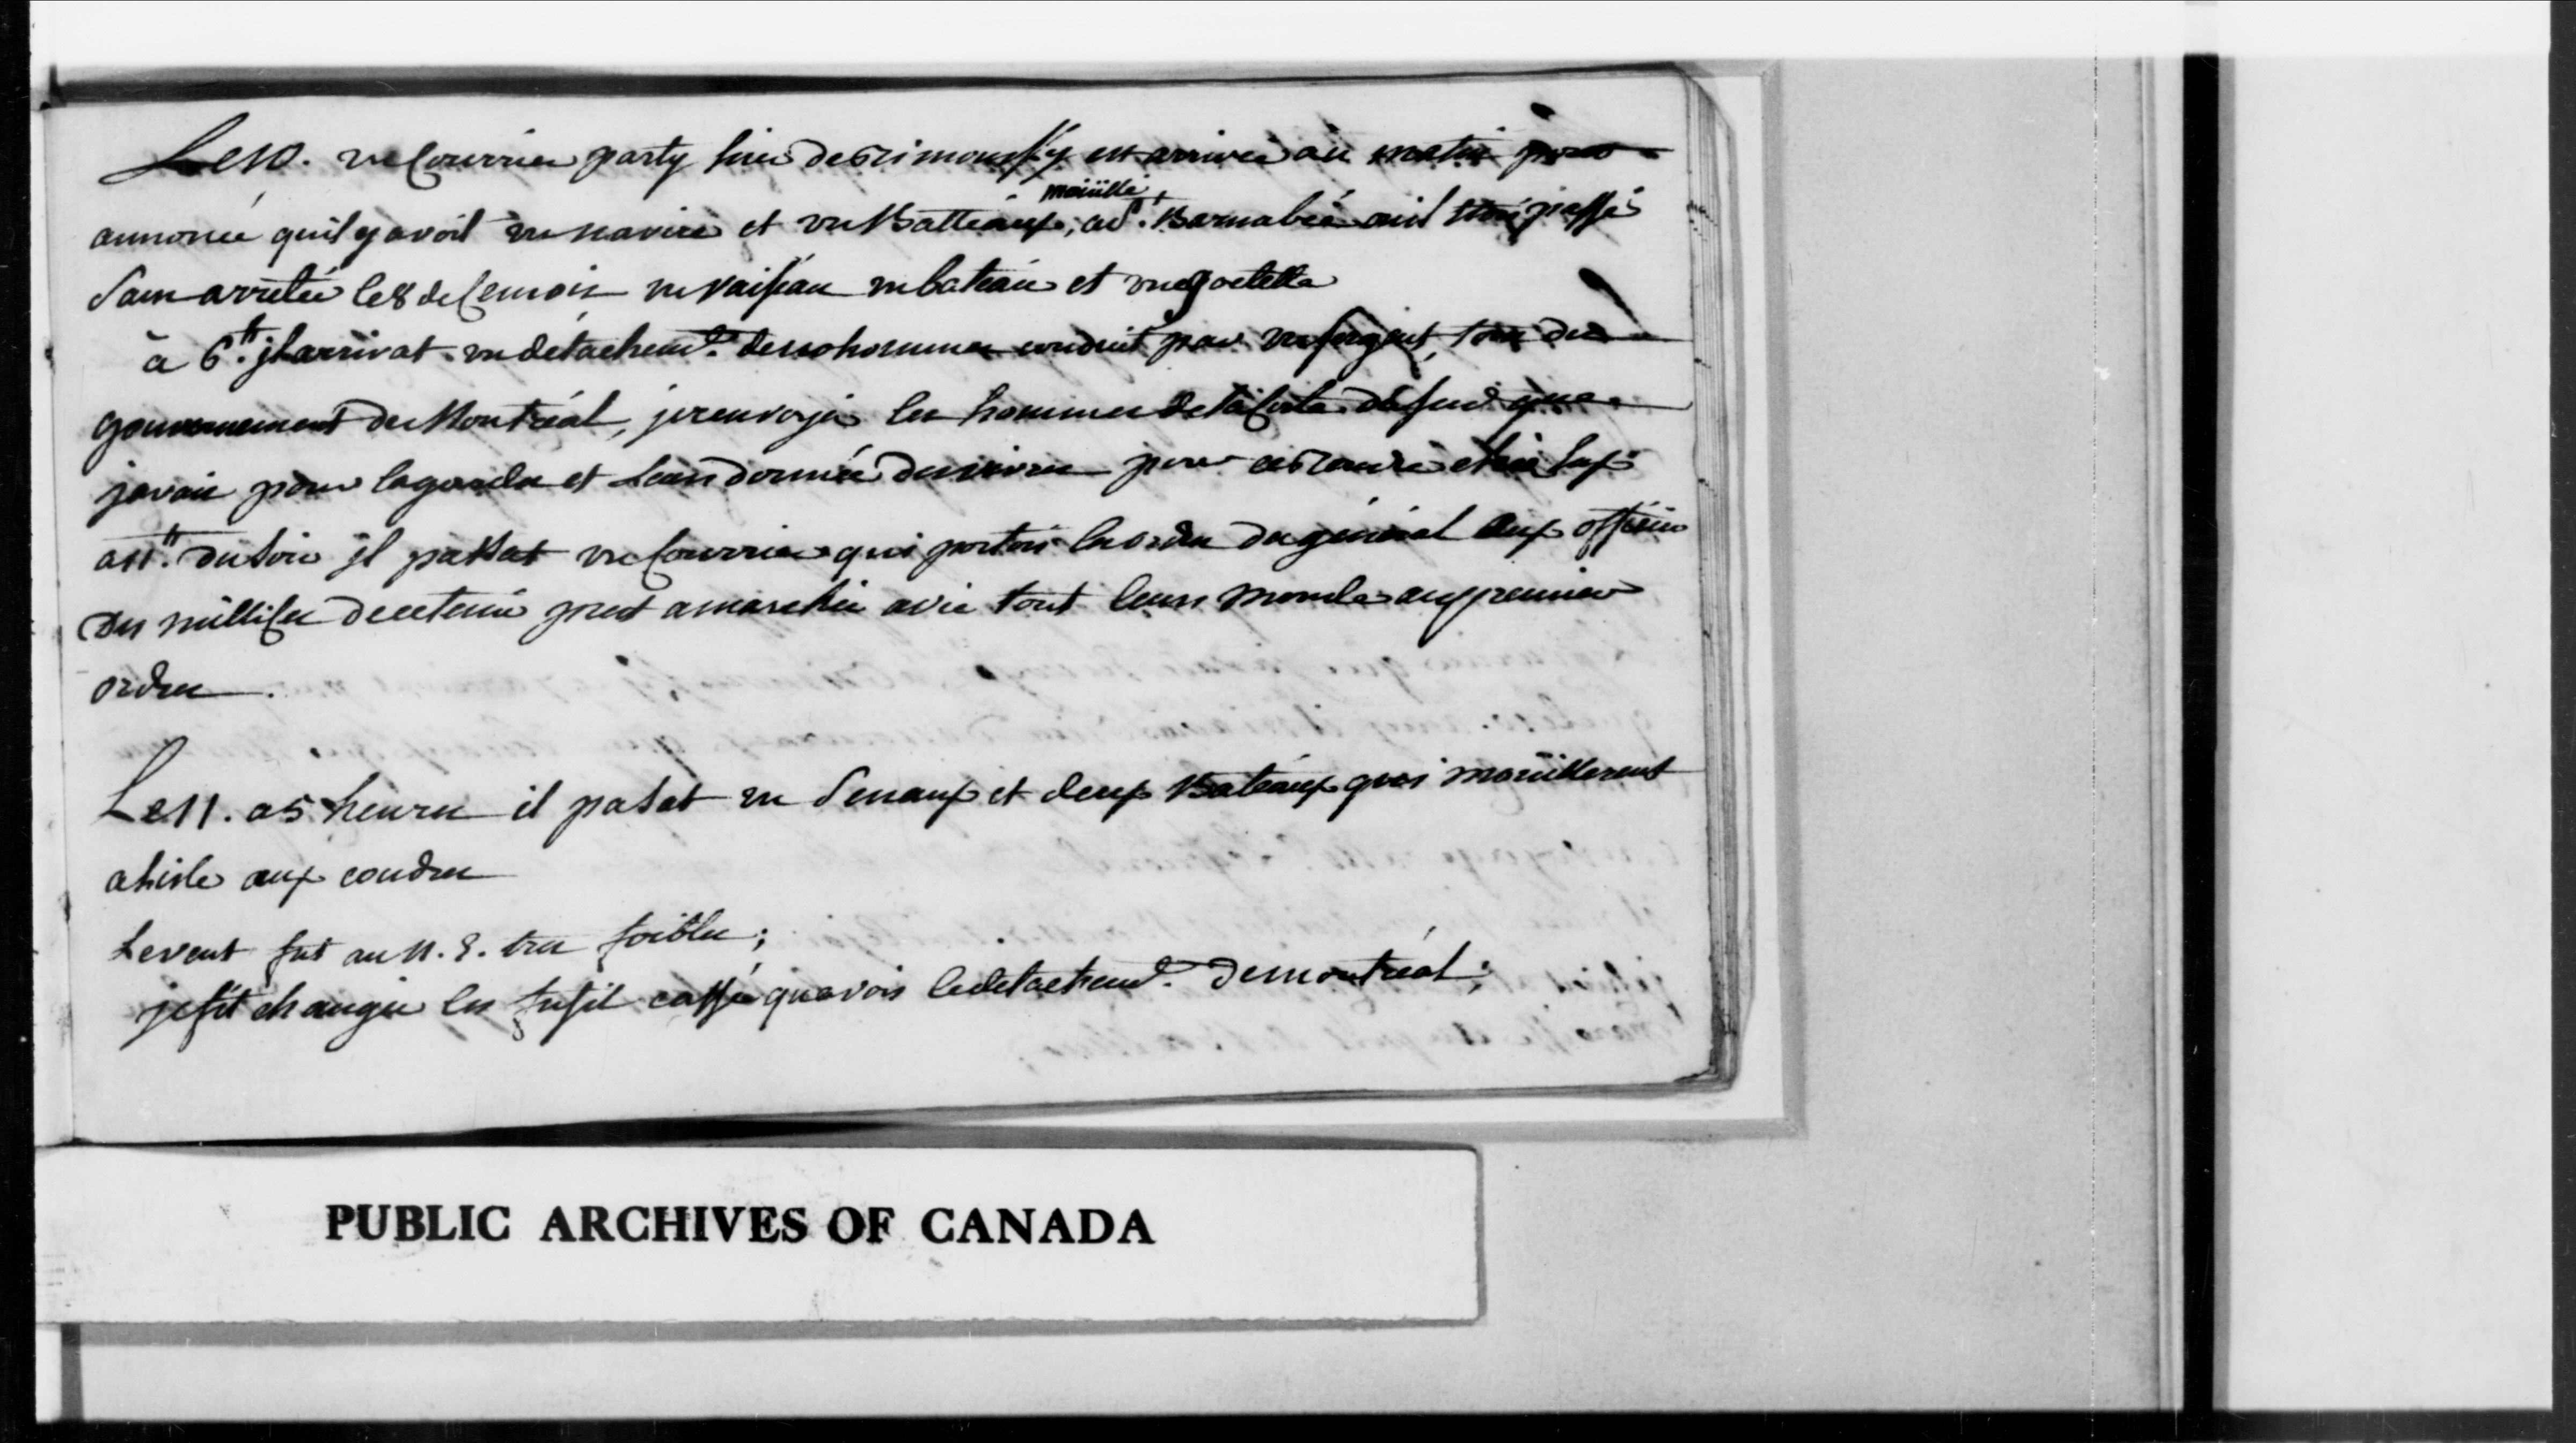 Le 10. un Courrier party hier de Rimousky est arrivée au matin pour
annoncé quil y avoit un navire et un Batteaux, moüillé a St. Barnabée quil étoit passé
sam arretée le 8 de ce mois un vaisseau un bateau et une goelette
à 6.h jl arrivat un détachemt. de 110 hommes conduit par un sergent, tous du
gouvernement de Montréal, je renvoyée les hommes de la Coste du sud que
javais pour la garde et Leurs donnée des vivres pour ce rendre chée Eux
a 11.h du soir jl passat un Courrier qui portois les ordres du général aux officier
des millices de ce tenir pret a marchée avec tout leurs monde au premier
ordres.
Le 11. a 5 heures il pasat un Senaux et deux Bateaux qui moüillerent
a lisle aux coudres
Le vent fut au N. E. tres foible;
je fit changée les fusil cassée quavois le detachemt. de montréal;
PUBLIC ARCHIVES OF CANADA